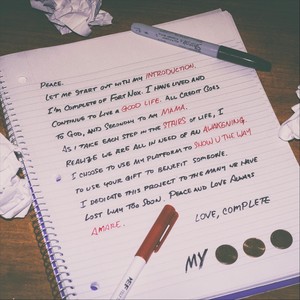 Peace.
Let me start out with my introduction.
I'm Complete of Fort Nox. I have lived and
continue to live a good life. All credit goes
to God, and secondly to my mama.
As I take each step in the stairs of life, I
realize we are all in need of an awakening.
I choose to use my platform to show u the way
to use your gift to benefit someone.
I dedicate this project to the many we have
lost way too soon. Peace and love always
Amare.
Love, Complete
My